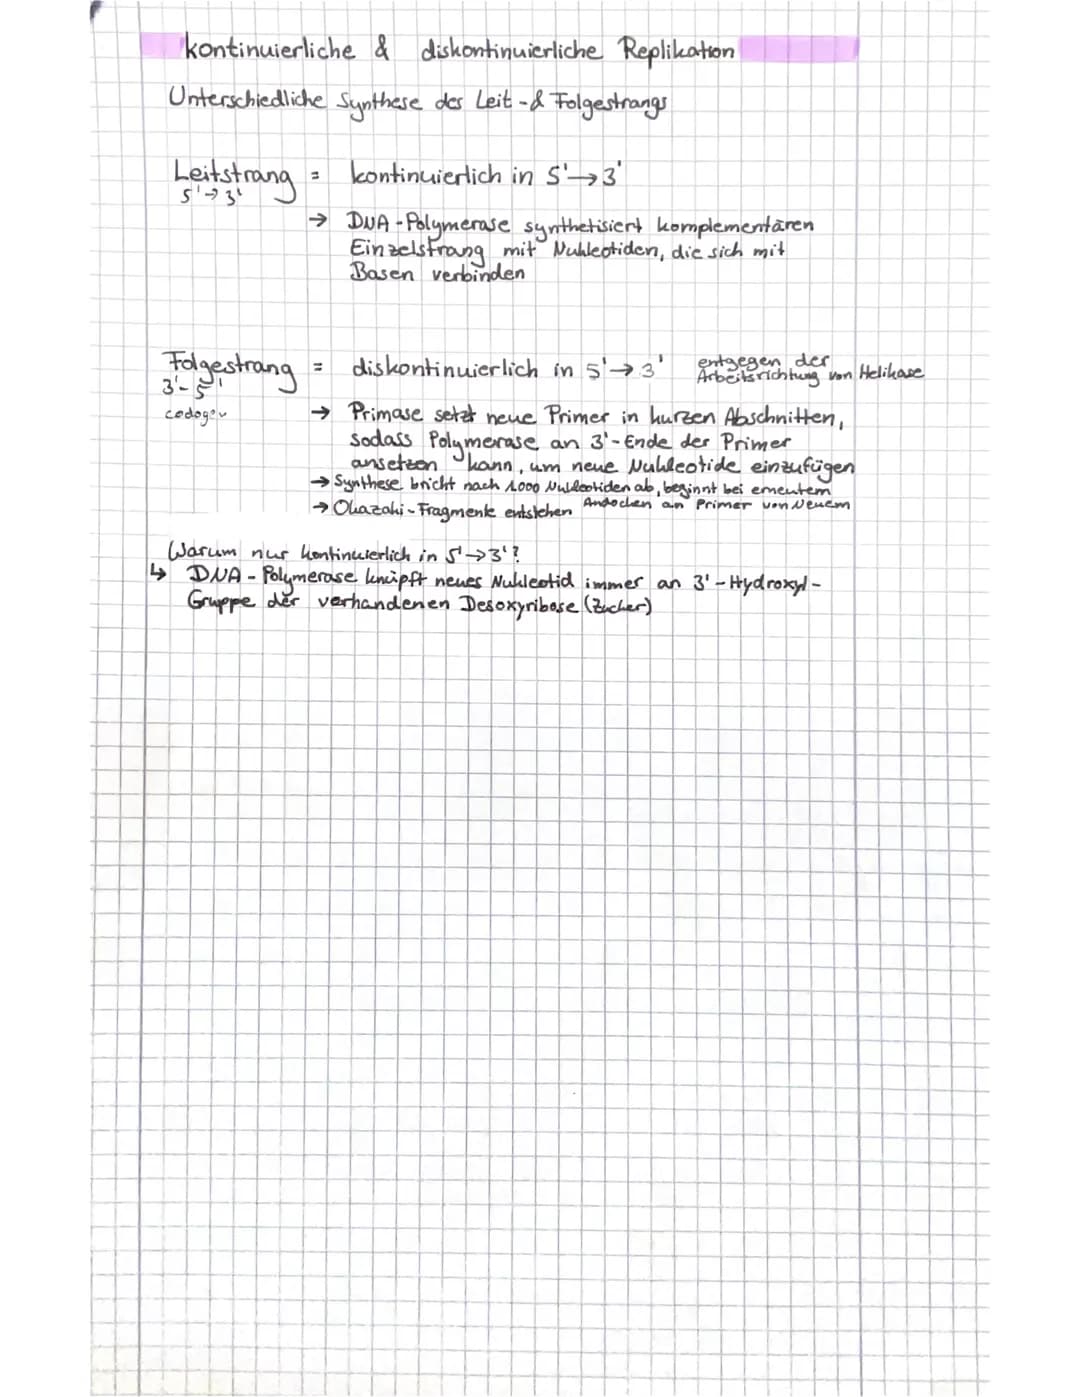 kontinuierliche & diskontinuierliche Replikation
Unterschiedliche Synthese des Leit-& Folgestrangs
Leitstrang = kontinuierlich in 5'→3'
5'→3'
→ DNA-Polymerase synthetisiert komplementären
Einzelstrang mit Nukleotiden, die sich mit
Basen verbinden
Folgestrang = diskontinuierlich in 5'→3' entgegen der
Arbeitsrichtung von Helikase
3'-5'
codogen
→ Primase setzt neue Primer in kurzen Abschnitten,
sodass Polymerase an 3'-Ende der Primer
ansetzen kann, um neue Nukleotide einzufügen
→ Synthese bricht nach 1.000 Nukleotiden ab, beginnt bei erneutem
Andocken an Primer von Neuem
→ Okazaki-Fragmente entstehen
Warum nur kontinuierlich in 5'→3'?
↳ DNA-Polymerase knüpft neues Nukleotid immer an 3'-Hydroxyl-
Gruppe der vorhandenen Desoxyribose (Zucker)